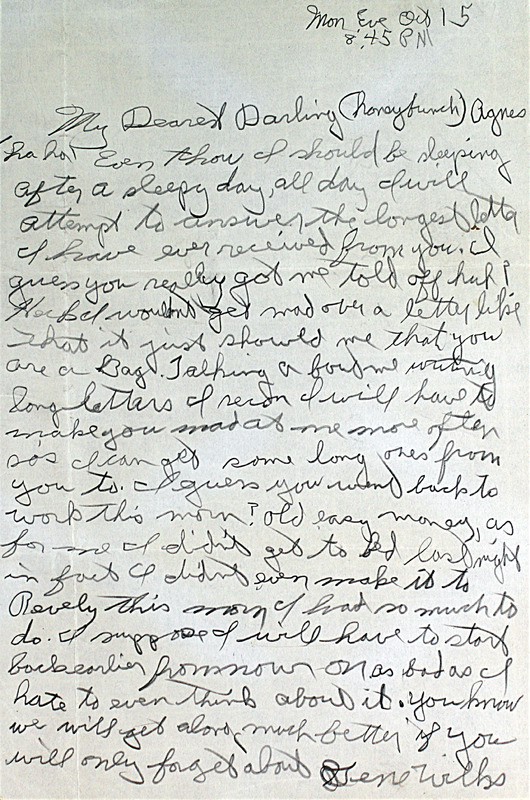 Mon Eve Oct 15
8:45 PM
My Dearest Darling (honeybunch) Agnes
"ha ha" Even thow I should be sleeping
after a sleepy day, all day I will
attempt to answer the longest letta
I have ever received from you. I
guess you really got me told off huh?
Heck I wouldnt get mad over a letter like
that it just should me that you
are a Bag. Talking a bout me writing
long letters I recon I will have to
make you mad at me more often
sos I can get some long ones from
you to. I guess you went back to
work this morn? Old easy money, as
for me I didn't get to bed last night
in fact I didn't even make it to
Revely this morn I had so much to
do. I suppose I will have to start
back earlier from now on as bad as I
hate to even think about it. You know
we will get along much better if you
will only forget about Gene Wilks